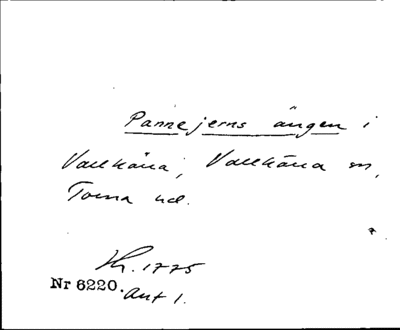 Pannejerns ängen i
Vallkärra, Vallkärra sn,
Torna hd.
Kr. 1775
Nr 6220.
Akt 1.